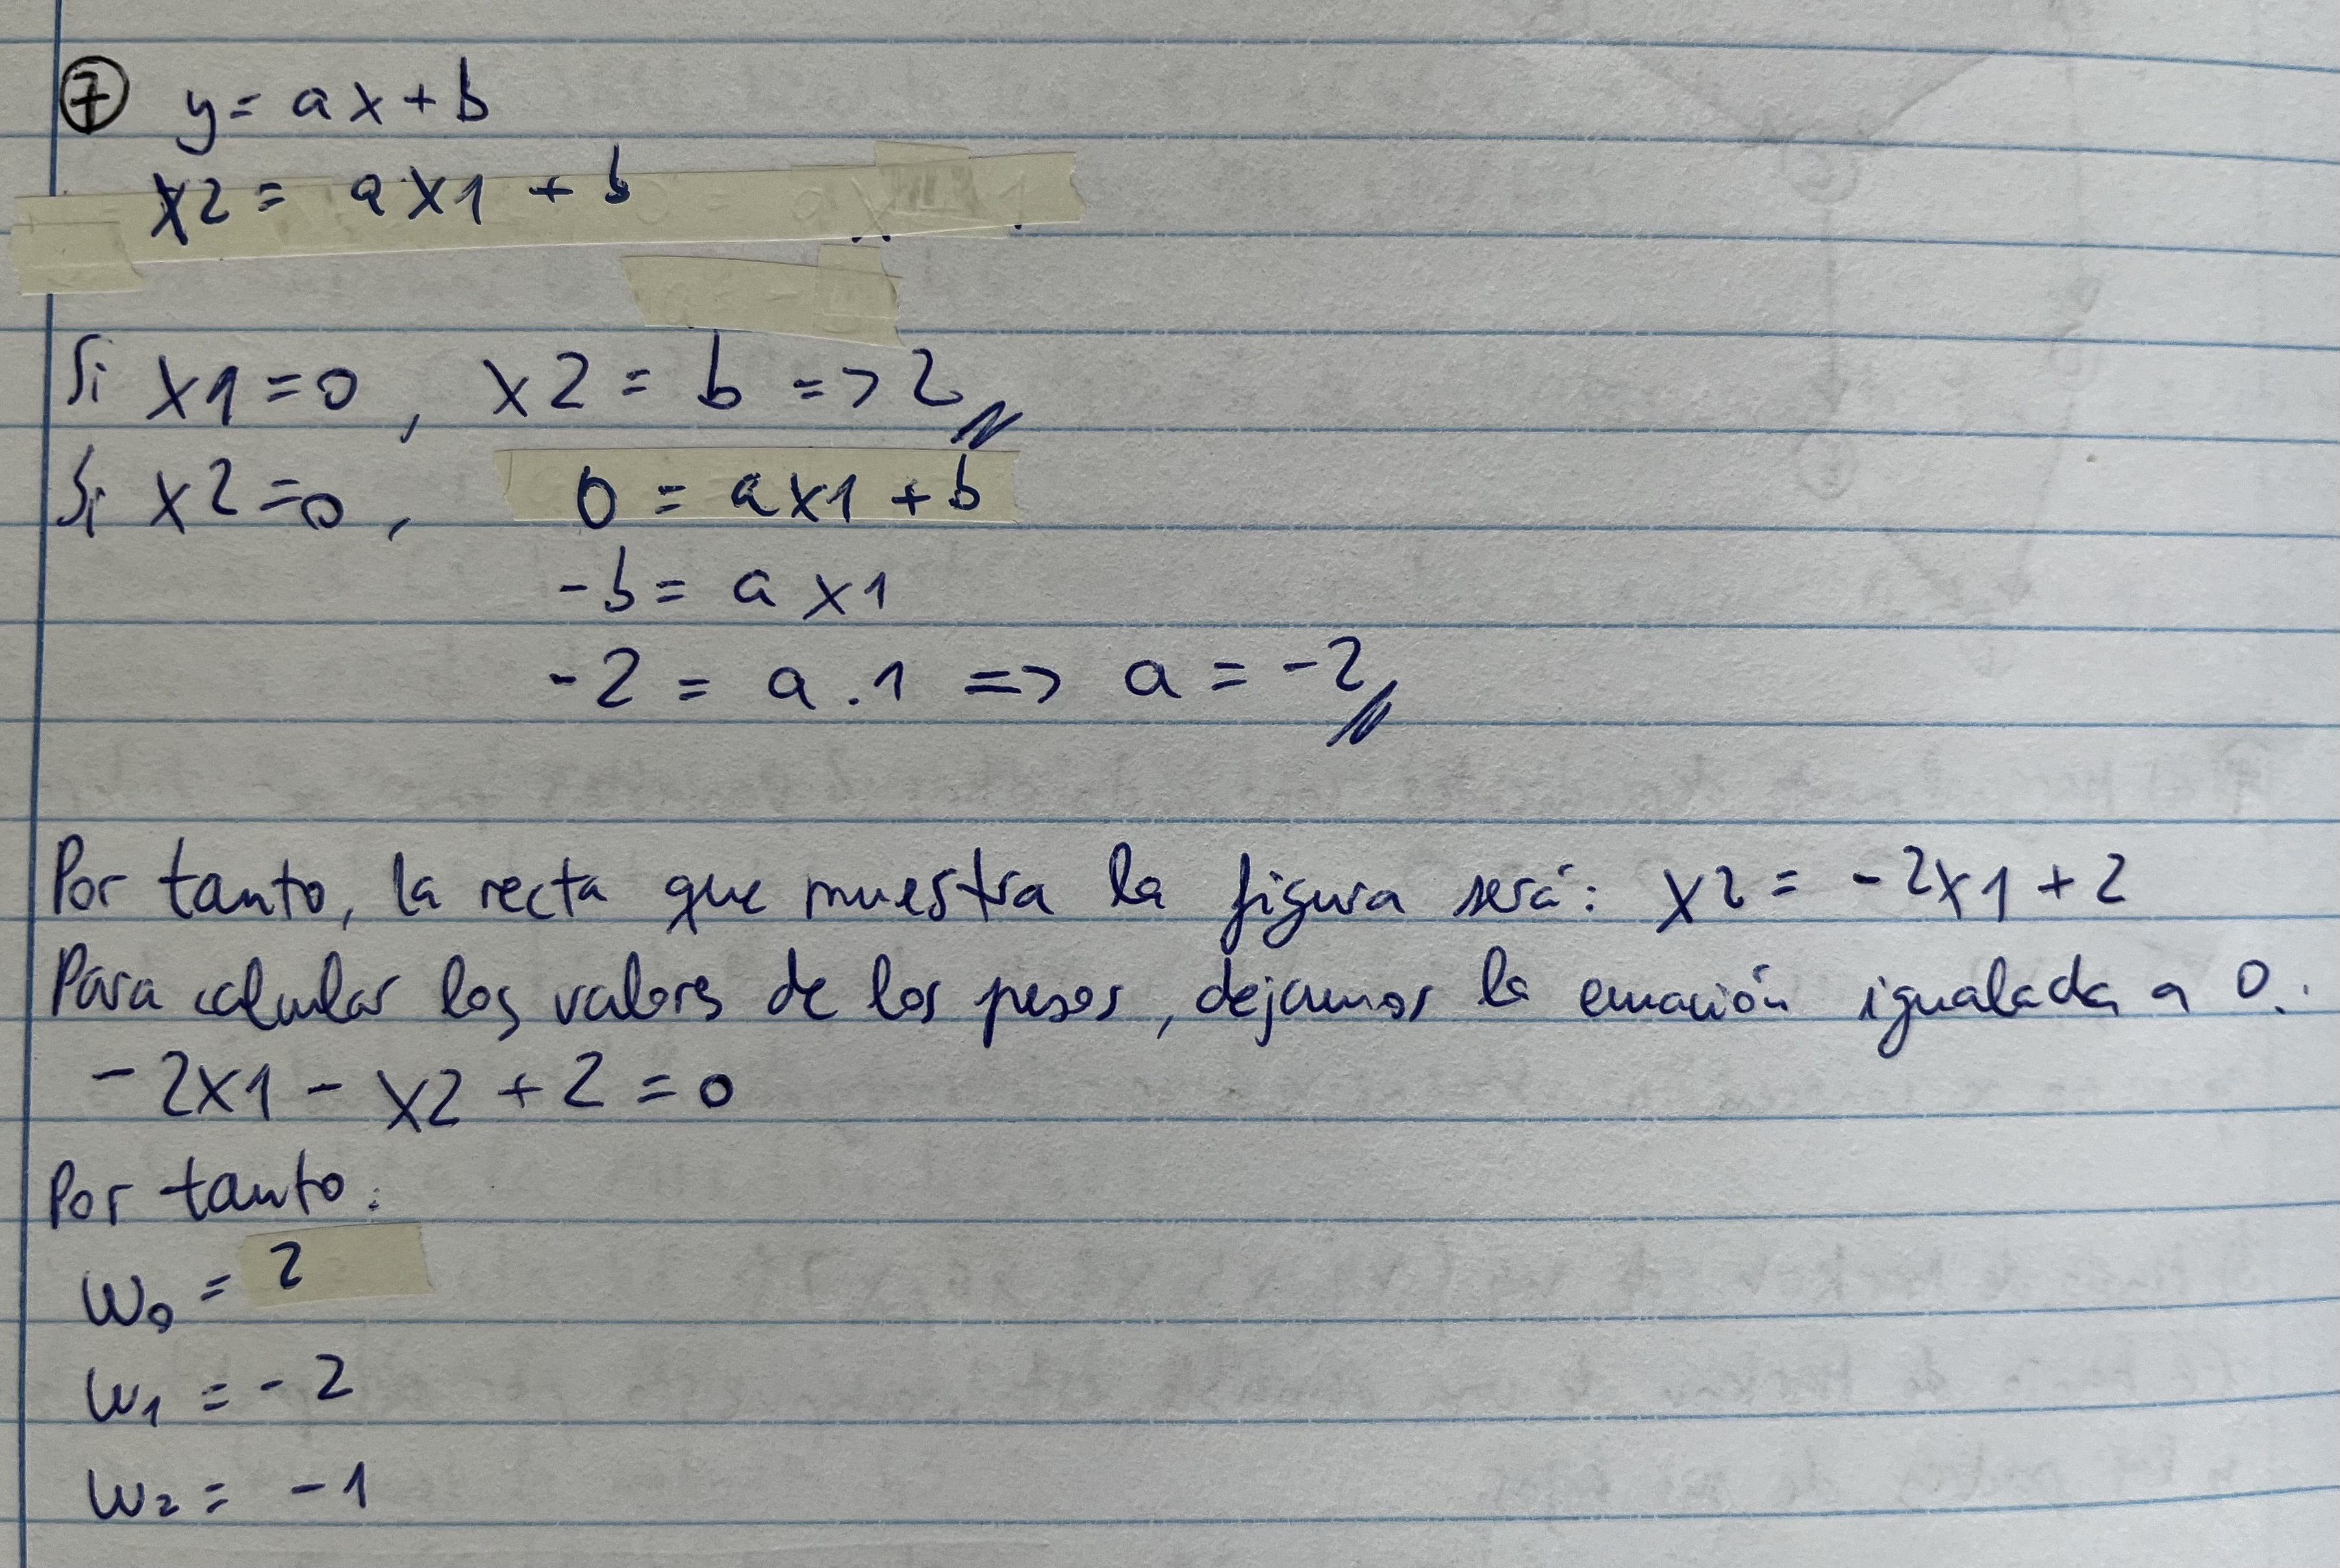 7 y = ax + b
x2 = ax1 + b
Si x1 = 0, x2 = b => 2
Si x2 = 0, 0 = ax1 + b
-b = ax1
-2 = a.1 => a = -2
Por tanto, la recta que muestra la figura será: x2 = -2x1 + 2
Para calcular los valores de los pesos, dejamos la ecuación igualada a 0.
-2x1 - x2 + 2 = 0
Por tanto:
w0 = 2
w1 = -2
w2 = -1